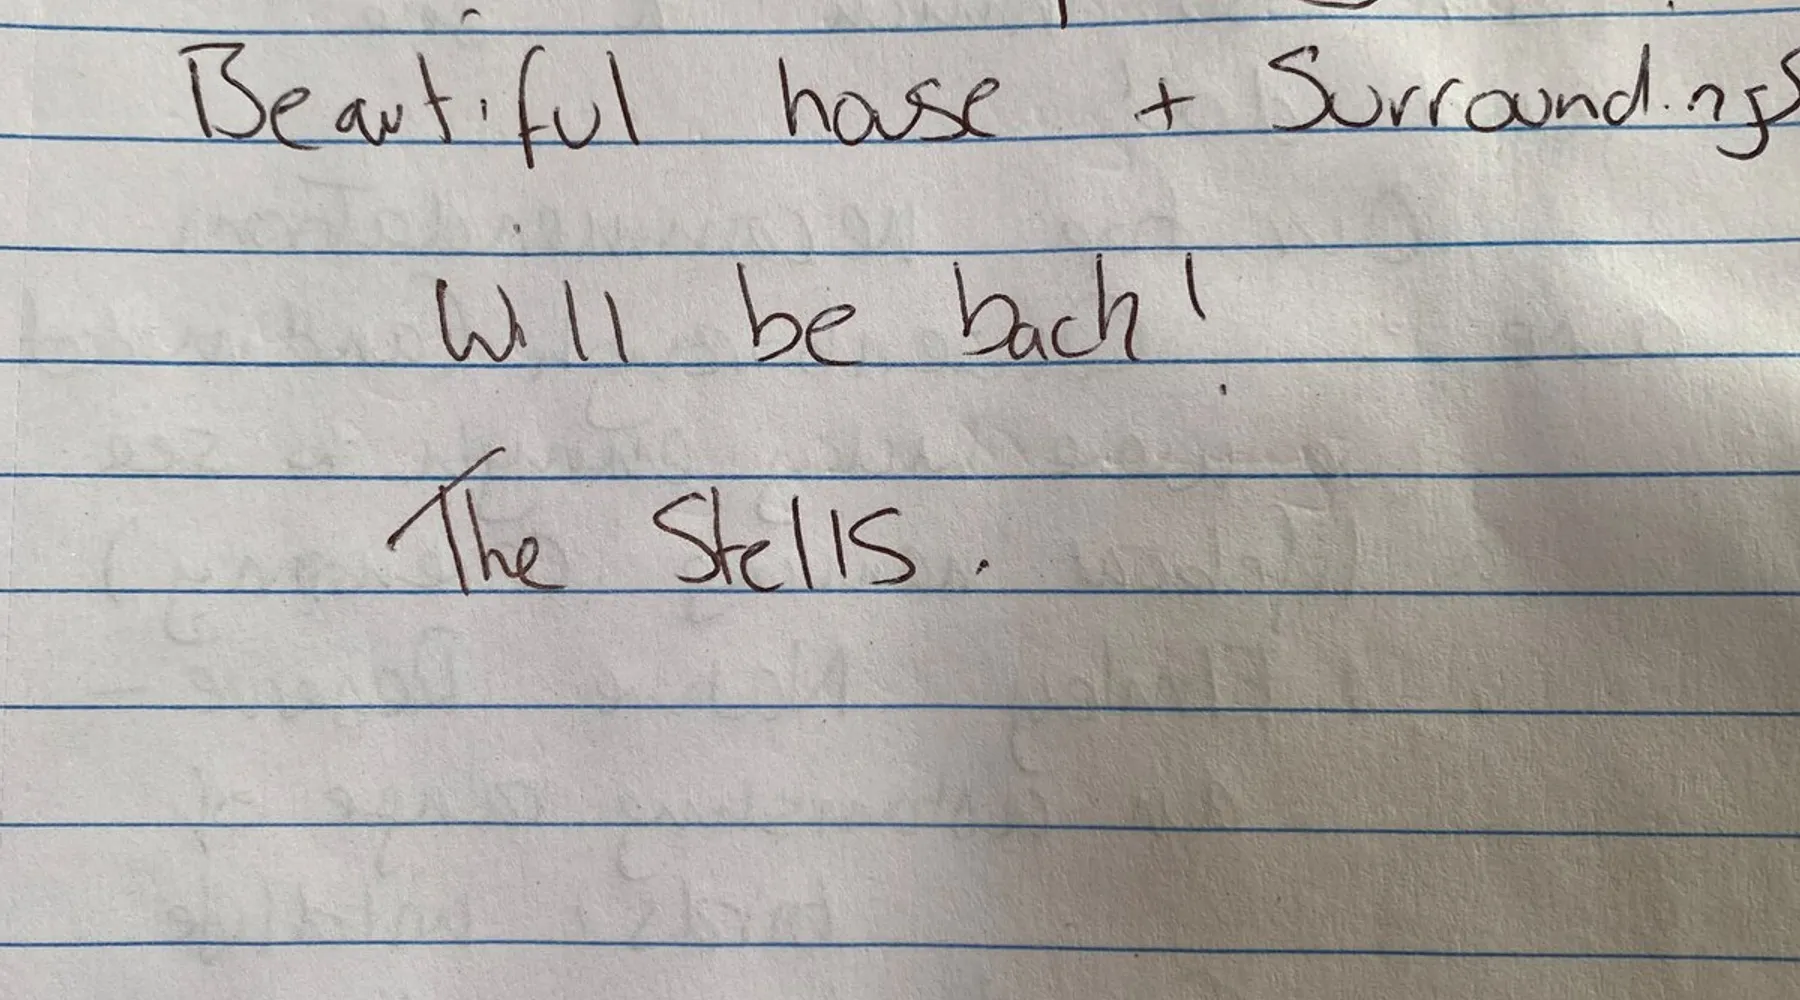 Beautiful house + Surroundings
Will be back!
The Stells.